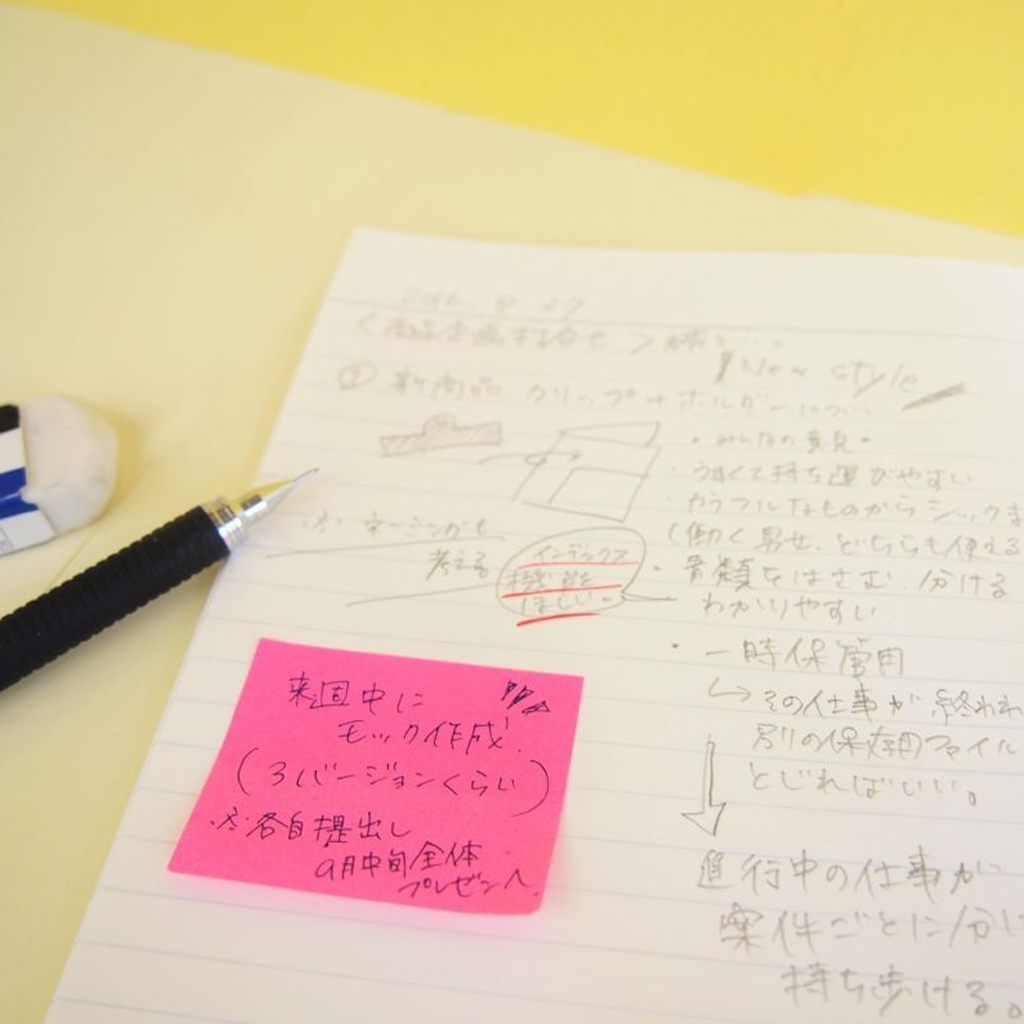 New style
① 新商品 クリップ+ホルダーについ
・みんなの意見。
・うすくて持ち運びやすい
・カラフルなものからシックま
(働く男女、どちらも使える
※ネーミングも
考える
インデックス
機能
ほしい。
・書類をはさむ、分ける
わかりやすい
・一時保管用
↳その仕事が終われ
別の保存用ファイル
とじればいい。
進行中の仕事が
案件ごとに分け
持ち歩ける。
来週中に
モック作成.
(3バージョンくらい)
※各自提出し
9月中旬全体
プレゼンへ.